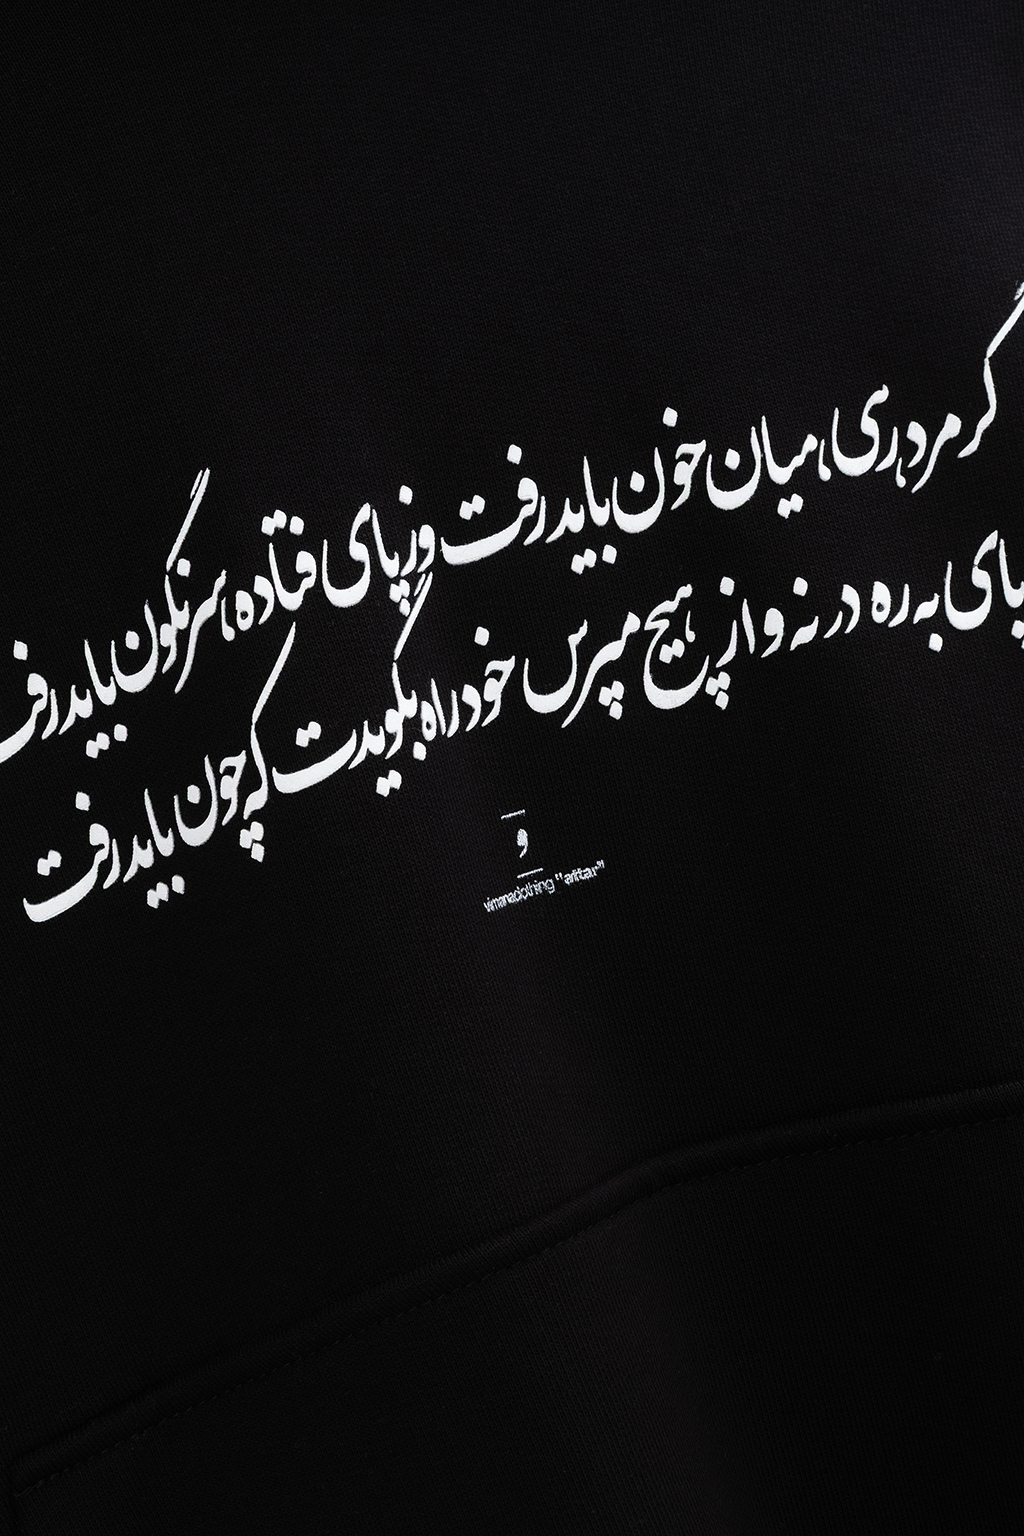 گر مرد رهی، میان خون باید رفت وز پای فتاده، سرنگون باید رفت
پای به ره در نه و از هیچ مپرس خود راه بگویدت که چون باید رفت
و
vimanaclothing "attar"